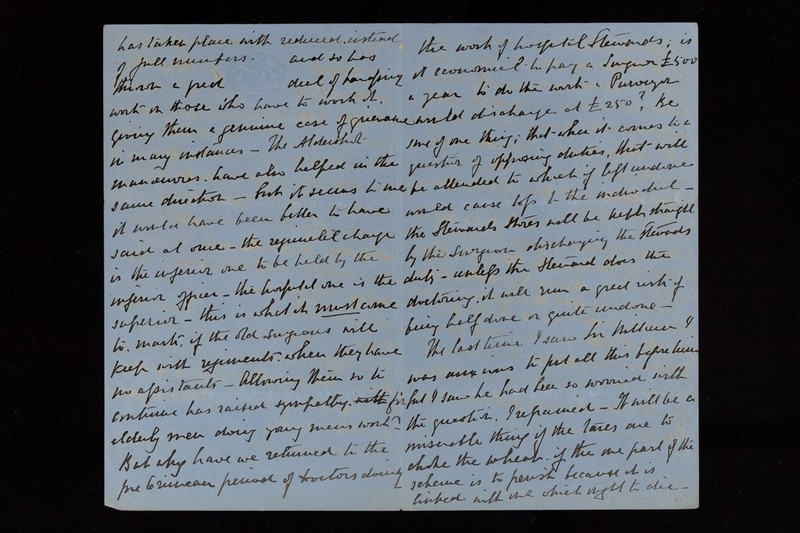 has taken place with reduced instead
of full numbers. and so has
thrown a great deal of harassing
work on those who have to work it,
giving them a genuine case of grievance
in many instances - The Aldershot
manœuvres have also helped in the
same direction - But it seems to me
it would have been better to have
said at once - the regimental charge
is the inferior one to be held by the
inferior officer - the hospital one is the
superior - this is what it must come
to. mark; if the old Surgeons will
keep with regiments. when they have
no assistants - Allowing them so to
continue has raised sympathy for
elderly men doing young mens work -
But why have we returned to the
pre Crimean period of Doctors doing
the work of hospital Stewards; is
it economical to pay a Surgeon £500
a year to do the work a Purveyor
would discharge at £250? Be
sure of one thing; that when it comes to a
question of opposing duties, that will
be attended to which if left undone
would cause loss to the individual -
the Stewards Stores will be kept straight
by the Surgeon discharging the Stewards
duty - unless the Steward does the
doctoring, it will run a great risk of
being half done or quite undone -
The last time I saw Sir William I
was anxious to put all this before him
but I saw he had been so worried with
the question. I refrained - It will be a
miserable thing if the tares are to
choke the wheat. if the one part of the
scheme is to perish because it is
linked with one which ought to die -